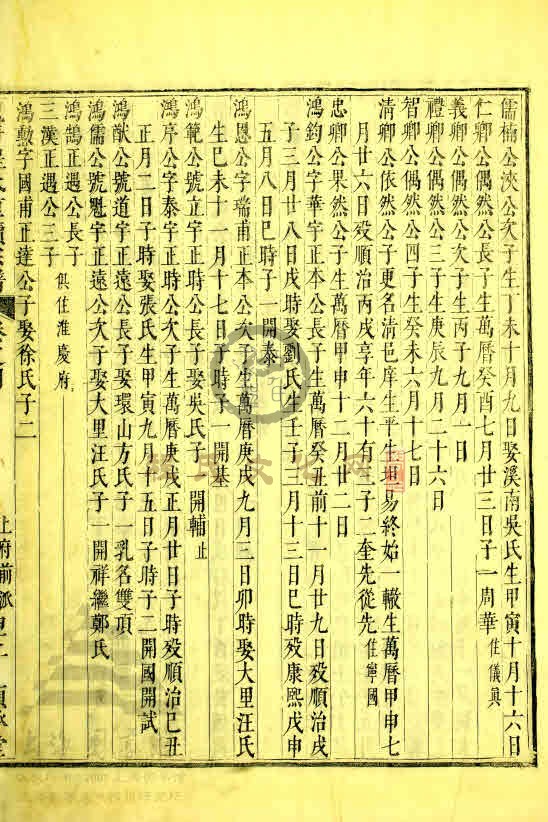 儒楠公浹公次子生丁未十月九日娶溪南吳氏生甲寅十月十六日
仁卿公偶然公長子生萬曆癸酉七月廿三日子一周華住儀真
義卿公偶然公次子生丙子九月一日
禮卿公偶然公三子生庚辰九月二十六日
智卿公偶然公四子生癸未六月十七日
清卿公依然公子更名清邑庠生平生坦易終始一轍生萬曆甲申七
月廿六日歿順治丙戌享年六十有三子二奎先從先住寧國
忠卿公果然公子生萬曆甲申十二月廿二日
鴻鈞公字華宇正本公長子生萬曆癸丑前十一月廿九日歿順治戌
子三月廿八日戌時娶劉氏生壬子三月十三日巳時歿康熙戊申
五月八日巳時子一開泰
鴻恩公字瑞甫正本公次子生萬曆庚戌九月三日卯時娶大里汪氏
生巳未十一月十七日子時子一開基
鴻範公號立宇正時公長子娶吳氏子一開輔止
鴻序公字泰宇正時公次子生萬曆庚戌正月廿日子時歿順治己丑
正月二日子時娶張氏生甲寅九月十五日子時子二開國開試
鴻猷公號道宇正遠公長子娶環山方氏子一乳名雙項
鴻儒公號魁宇正遠公次子娶大里汪氏子一開祥繼鄭氏
鴻鵠正遇公長子
三漢正遇公三子
俱住淮慶府
鴻勳字國甫正達公子娶徐氏子二
上府前派